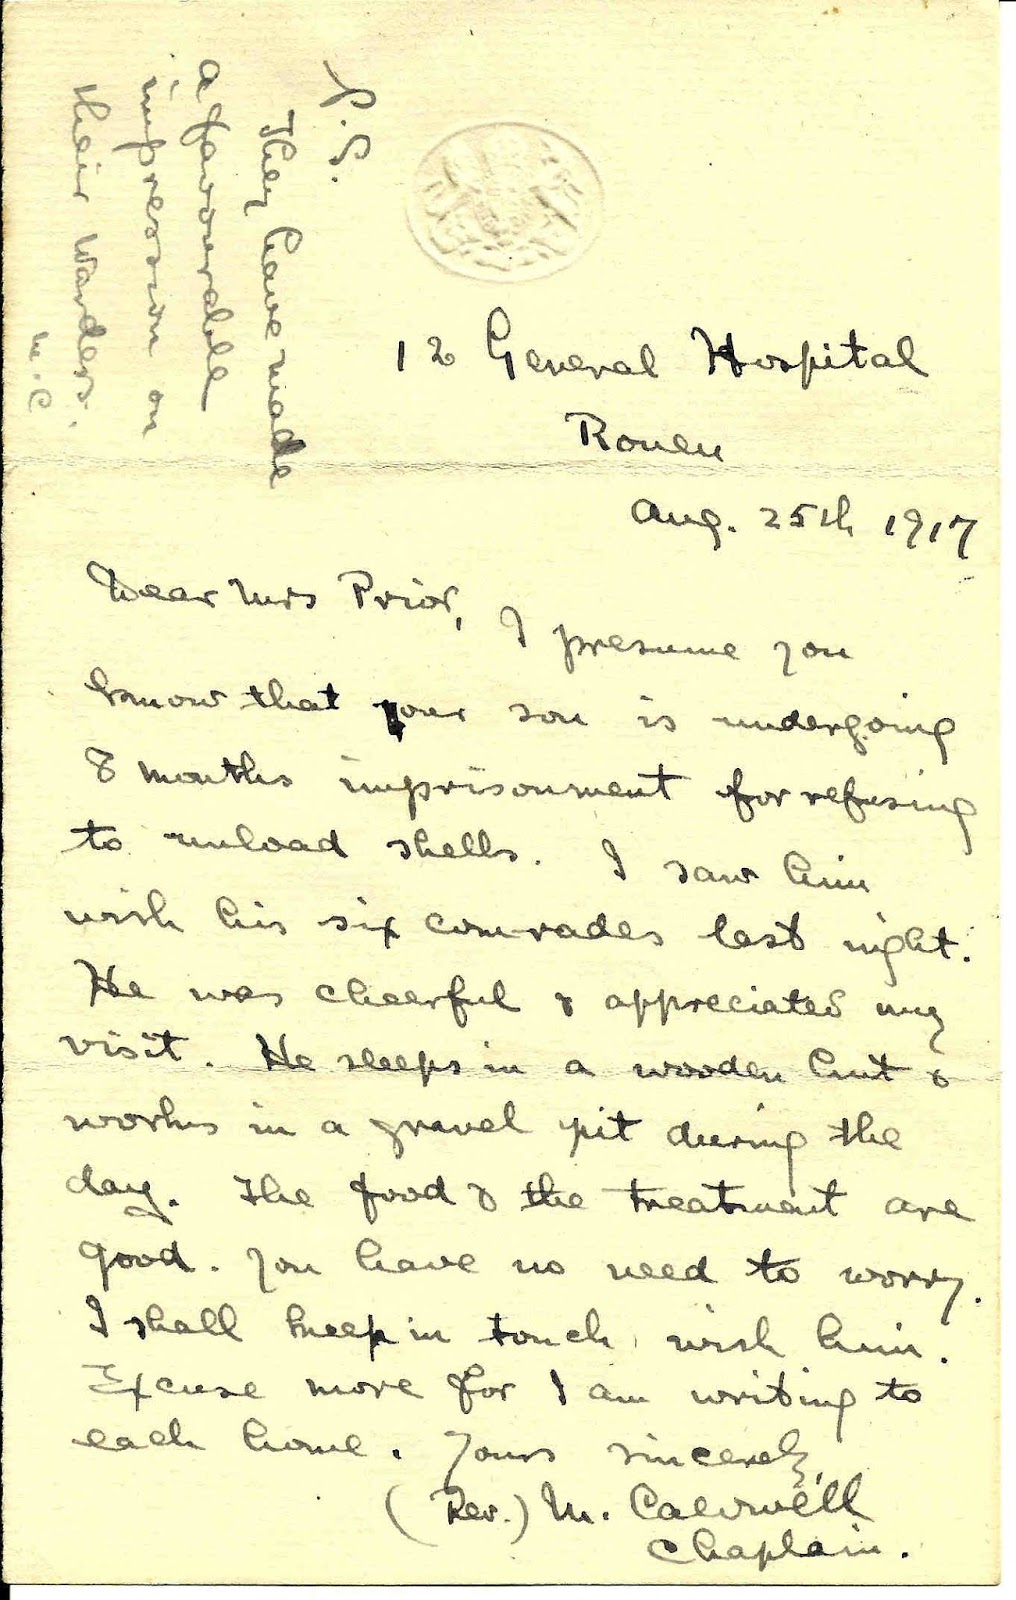 12 General Hospital
Rouen
Aug. 25th 1917
Dear Mrs Prior,
I presume you
know that your son is undergoing
8 months imprisonment for refusing
to unload shells. I saw him
with his six comrades last night.
He was cheerful & appreciated my
visit. He sleeps in a wooden hut &
works in a gravel pit during the
day. The food & the treatment are
good. You have no need to worry.
I shall keep in touch with him.
Excuse more for I am writing to
each home. Yours sincerely,
(Rev.) M. Caldwell
Chaplain.
P.S.
They have made
a favourable
impression on
their Warders.
M.C